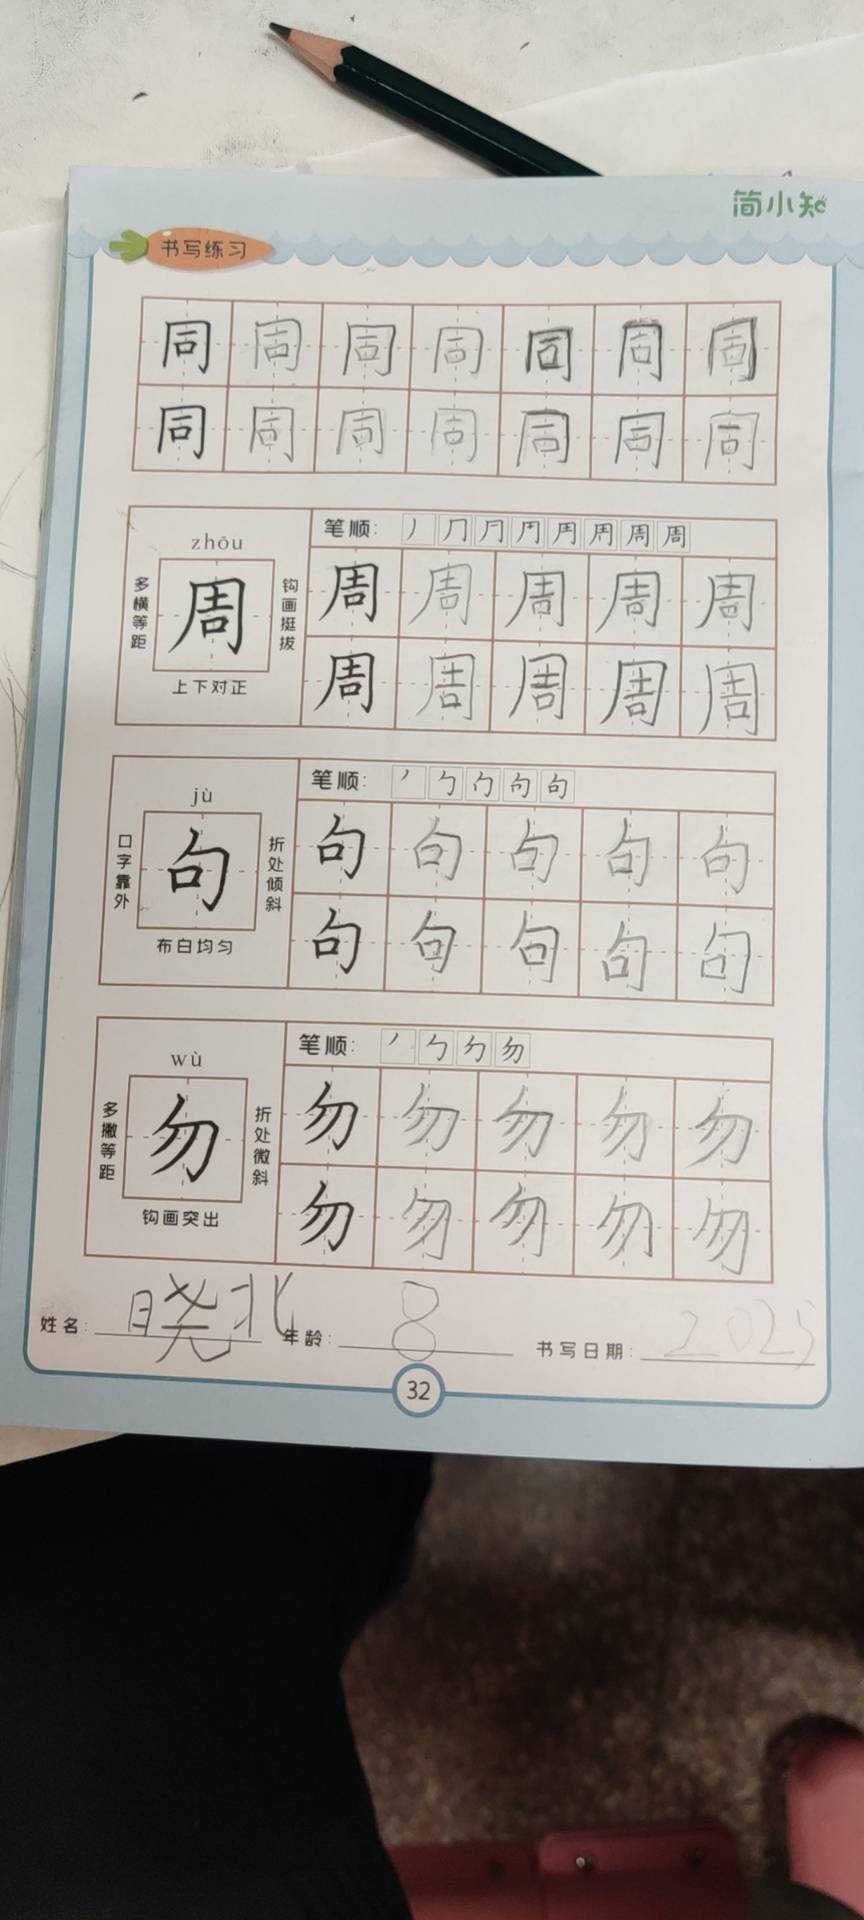 简小知
书写练习
同 同 同 同 同 同 同
同 同 同 同 同 同 同
zhōu
周
多横等距
钩画挺拔
上下对正
笔顺: 丿 冂 月 円 周 周 周
周 周 周 周 周
周 周 周 周 周
jù
句
口字靠外
折处倾斜
布白均匀
笔顺: 丿 勹 勹 句 句
句 句 句 句 句
句 句 句 句 句
wù
勿
多撇等距
折处微斜
钩画突出
笔顺: 丿 勹 勿 勿
勿 勿 勿 勿 勿
勿 勿 勿 勿 勿
姓名: 晓北 年龄: 8 书写日期: 2025
32